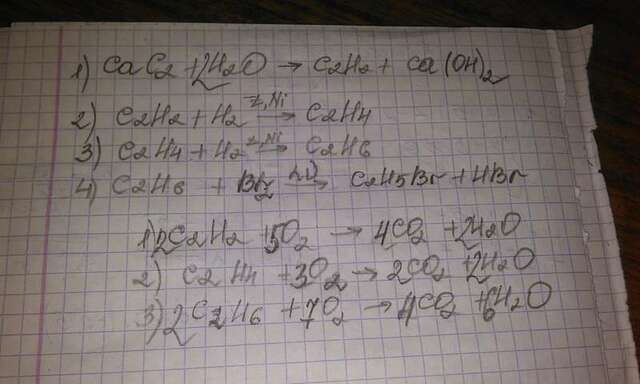 1) CaC2 + 2H2O → C2H2 + Ca(OH)2
2) C2H2 + H2 t,Ni→ C2H4
3) C2H4 + H2 t,Ni→ C2H6
4) C2H6 + Br2 → C2H5Br + HBr
1) 2C2H2 + 5O2 → 4CO2 + 2H2O
2) C2H4 + 3O2 → 2CO2 + 2H2O
3) 2C2H6 + 7O2 → 4CO2 + 6H2O